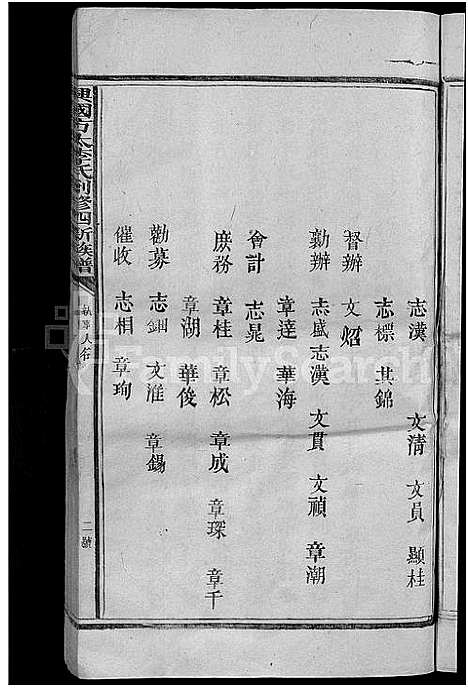 志漢 文清 文員 顯桂
志標 其錦
督辦 文炤
勷辦 志盛 志漢 文貫 文禎 章潮
章達 華海
會計 志晃
庶務 章桂 章松 章成 章琛 章千
章湖 華俊
勸募 志錮 文淮 章錫
催收 志相 章珣
興國古太李氏創修四新族譜
執事人名
二號
FamilySearch